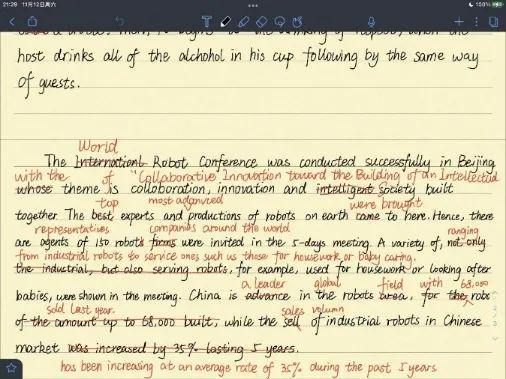 21:29 11月12日周六
100%
host drinks all of the alchohol in his cup following by the same way
of guests.
World
The International Robot Conference was conducted successfully in Beijing
with the of "Collaborative Innovation toward the Building of an Intellectual
whose theme is colloboration, innovation and intelligent Society built
top most advanced were brought
together. The best experts and productions of robots on earth came to here. Hence, there
representatives companies around the world ranging
are agents of 150 robots firms were invited in the 5-days meeting. A variety of, not only
from industrial robots to service ones such us those for housework or baby caring.
the industrial, but also serving robots, for example, used for housework or looking after
a leader global field with 68,000
babies, were shown in the meeting. China is advance in the robots area, for the robots
sold last year. sales volumn
of the amount up to 68,000 built, while the sell of industrial robots in Chinese
market was increased by 35% lasting 5 years.
has been increasing at an average rate of 35% during the past 5 years